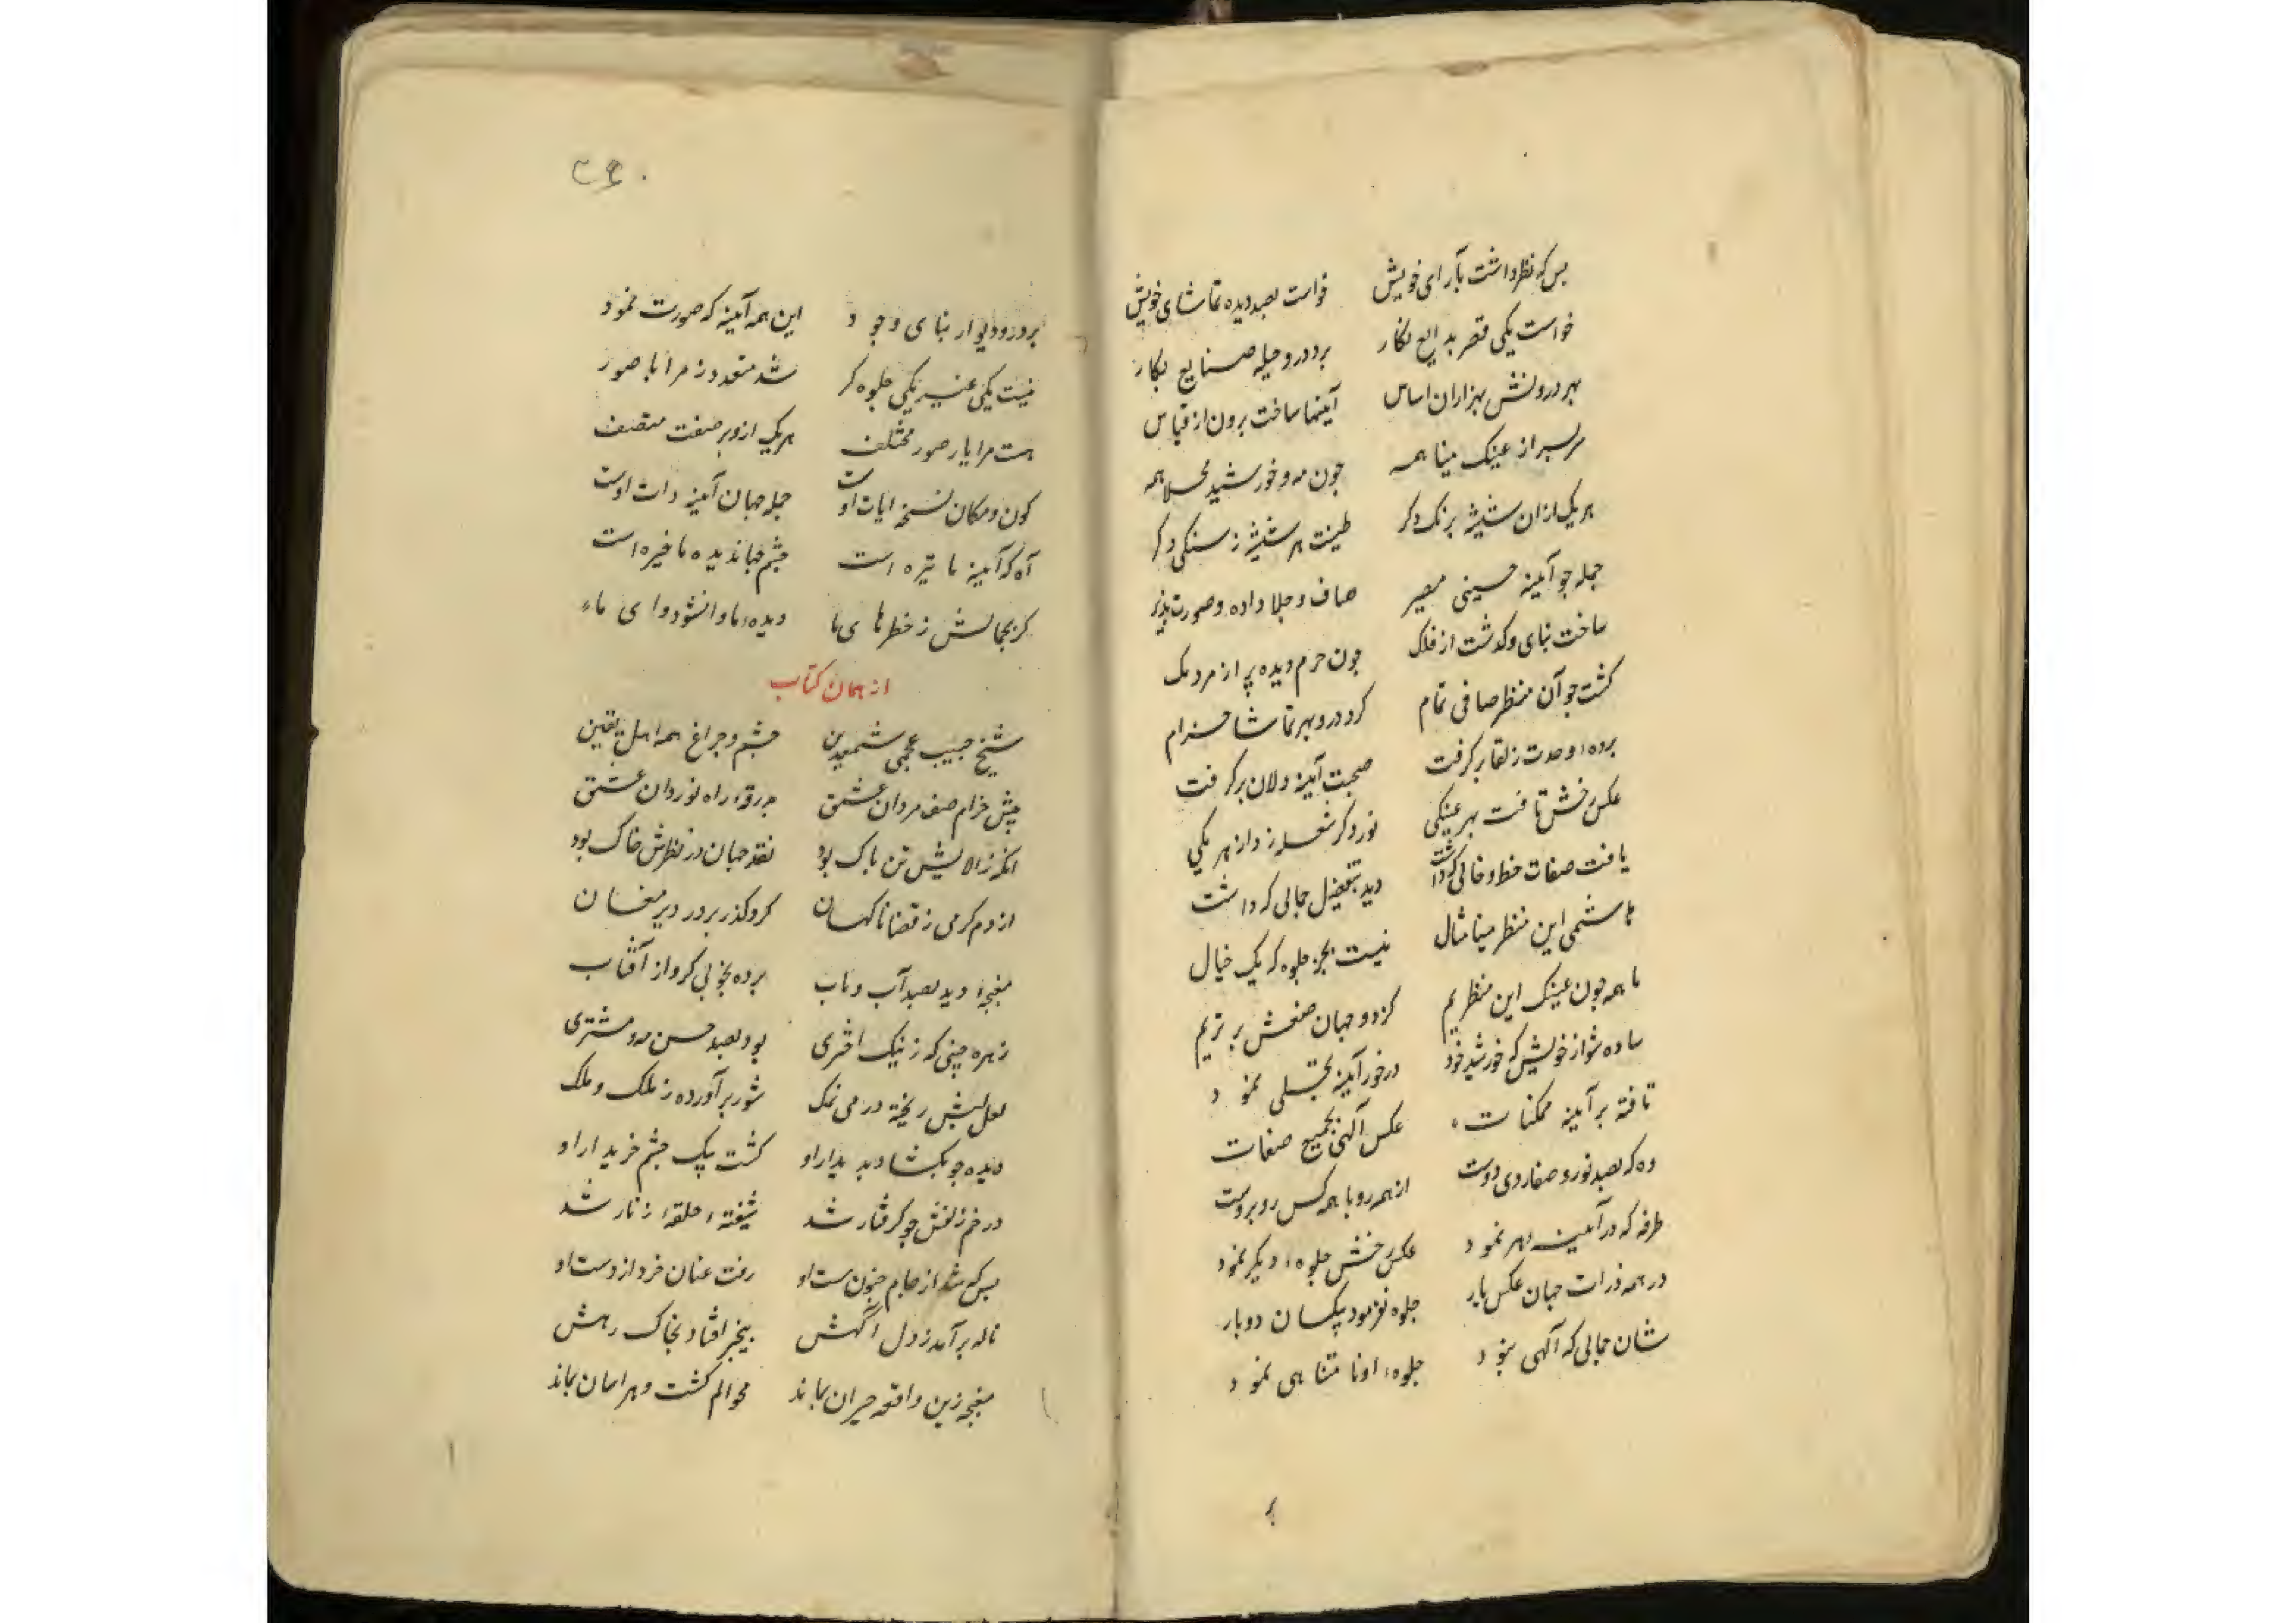 بس که نظر داشت بآرای خویش خواست بصد دیده تماشای خویش
خواست یکی قصر بدایع نکار برد درو حیله صنایع بکار
بهر درونش بهزاران اساس آینها ساخت برون از قیاس
سربسر از عینک مینا همه چون مه و خورشید مجلا همه
هر یک از ان شیشه برنک دکر طینت هر شیشه ز سنکی دکر
جمله جو آینه حسینی صاف و جلا داده و صورت پذیر
ساخت بنای و کذشت از فلک جون حرم دیده پر از مردمک
کشت جو آن منظر صافی تمام کرد درو بهر تماشا خرام
برده وحدت ز لقا برکرفت صحبت آینه دلان برکرفت
عکس رخش تافت بهر عینکی نور دکر شعله زد از هر یکی
یافت صفات خط و خالی که داشت دید بتفصیل جمالی که داشت
هاشمی این منظر مینا مثال نیست بجز جلوه که یک خیال
ما همه جون عینک این منظریم کز دو جهان صنعش برتریم
ساده شو از خویش که خورشید خود در خور آینه تجلی نمود
تافته بر آینه ممکنات عکس آلهی بجمیع صفات
وه که بصد نور و صفا روی دوست از همه رو با همه کس روبروست
طرفه که در آینه مهر نمود عکس رخش جلوه دیکر نمود
در همه ذرات جهان عکس یار جلوه نفرمود یکسان دوبار
شان جمالی که آلهی بود جلوه او نامتناهی نمود
بر
۳۶۰
بر در و دیوار بنای وجود این همه آینه که صورت نمود
نیست یکی غیر یکی جلوه کر شد متعدد ز مرایا صور
هست مرایا بصور مختلف هر یک ازو بر صفت متصف
کون و مکان نسخه ایات اوست جمله جهان آینه ذات اوست
آه که آینه ما تیره است چشم جهاندیده ما خیره است
کر بجمالش ز خطرهای ما دیده ما وا نشود وای ما
از همان کتاب
شیخ حبیب عجمی شمع دین چشم و چراغ همه اهل یقین
پیش خرام صف مردان عشق بدرقه راه نوردان عشق
انکه ز الایش تن باک بود نقد جهان در نظرش خاک بود
از دم کرمی ز قضا ناکهان کرد کذر بر در دیر مغان
مغبچه دید بصد آب و تاب برده بخوبی کرو از آفتاب
زهره جبینی که ز نیک اختری بود بصد حسن مه و مشتری
لعل لبش ریخته در می نمک شور برآورده ز ملک و ملک
دیده جو بکشاد بدیدار او کشت بیک چشم خریدار او
در خم زلفش جو کرفتار شد شیفته حلقه زنار شد
بس که شد از جام جنون مست او رفت عنان خرد از دست او
ناله برآمد ز دل آکهش بیخبر افتاد بخاک رهش
مغبچه زین واقعه حیران بماند محو الم کشت و هراسان بماند